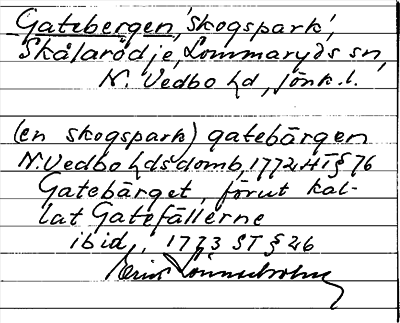 Gatebergen, 'skogspark',
Skålarödje, Lommaryds sn,
N. Vedbo hd, Jönk. l.
(en skogspark) gatebärgen
N. Vedbo hds domb. 1772 HT § 76
Gatebärget, förut kal-
lat Gatefällerne
ibid., 1773 ST § 26
Erik